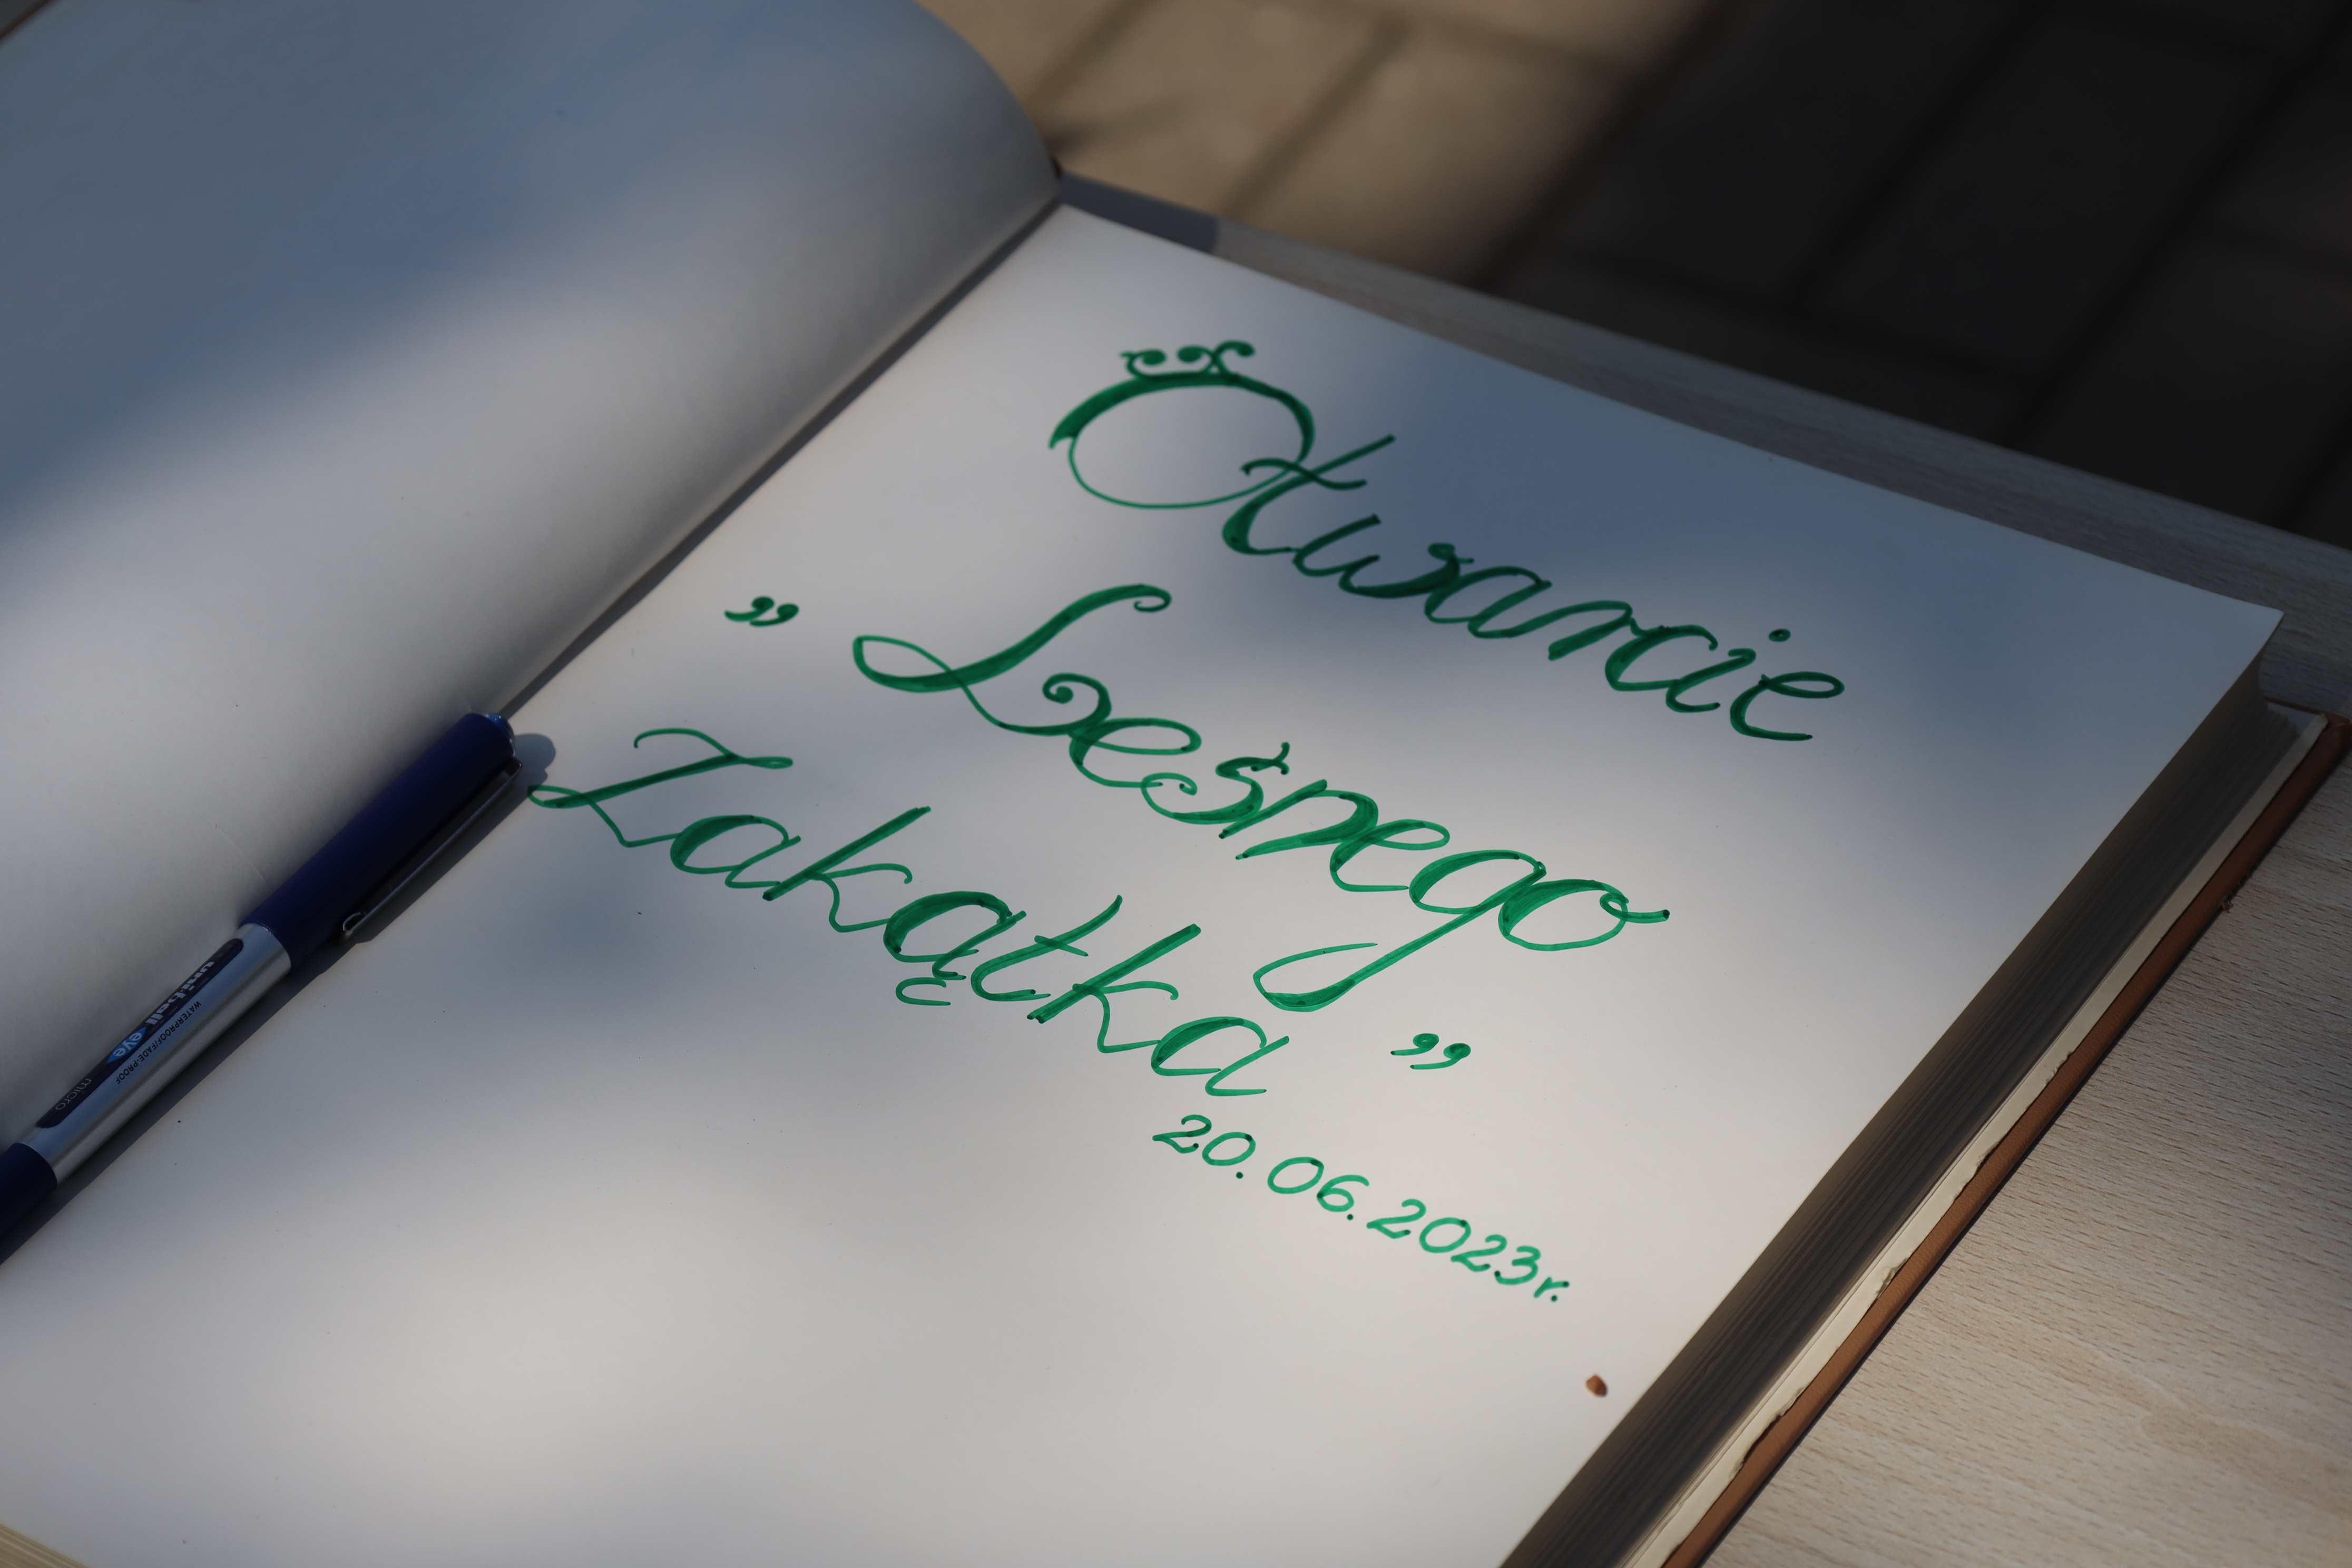 Otwarcie
„Leśnego
Zakątka”
20.06.2023r.
uni-ball eye
WATERPROOF/FADE-PROOF
micro